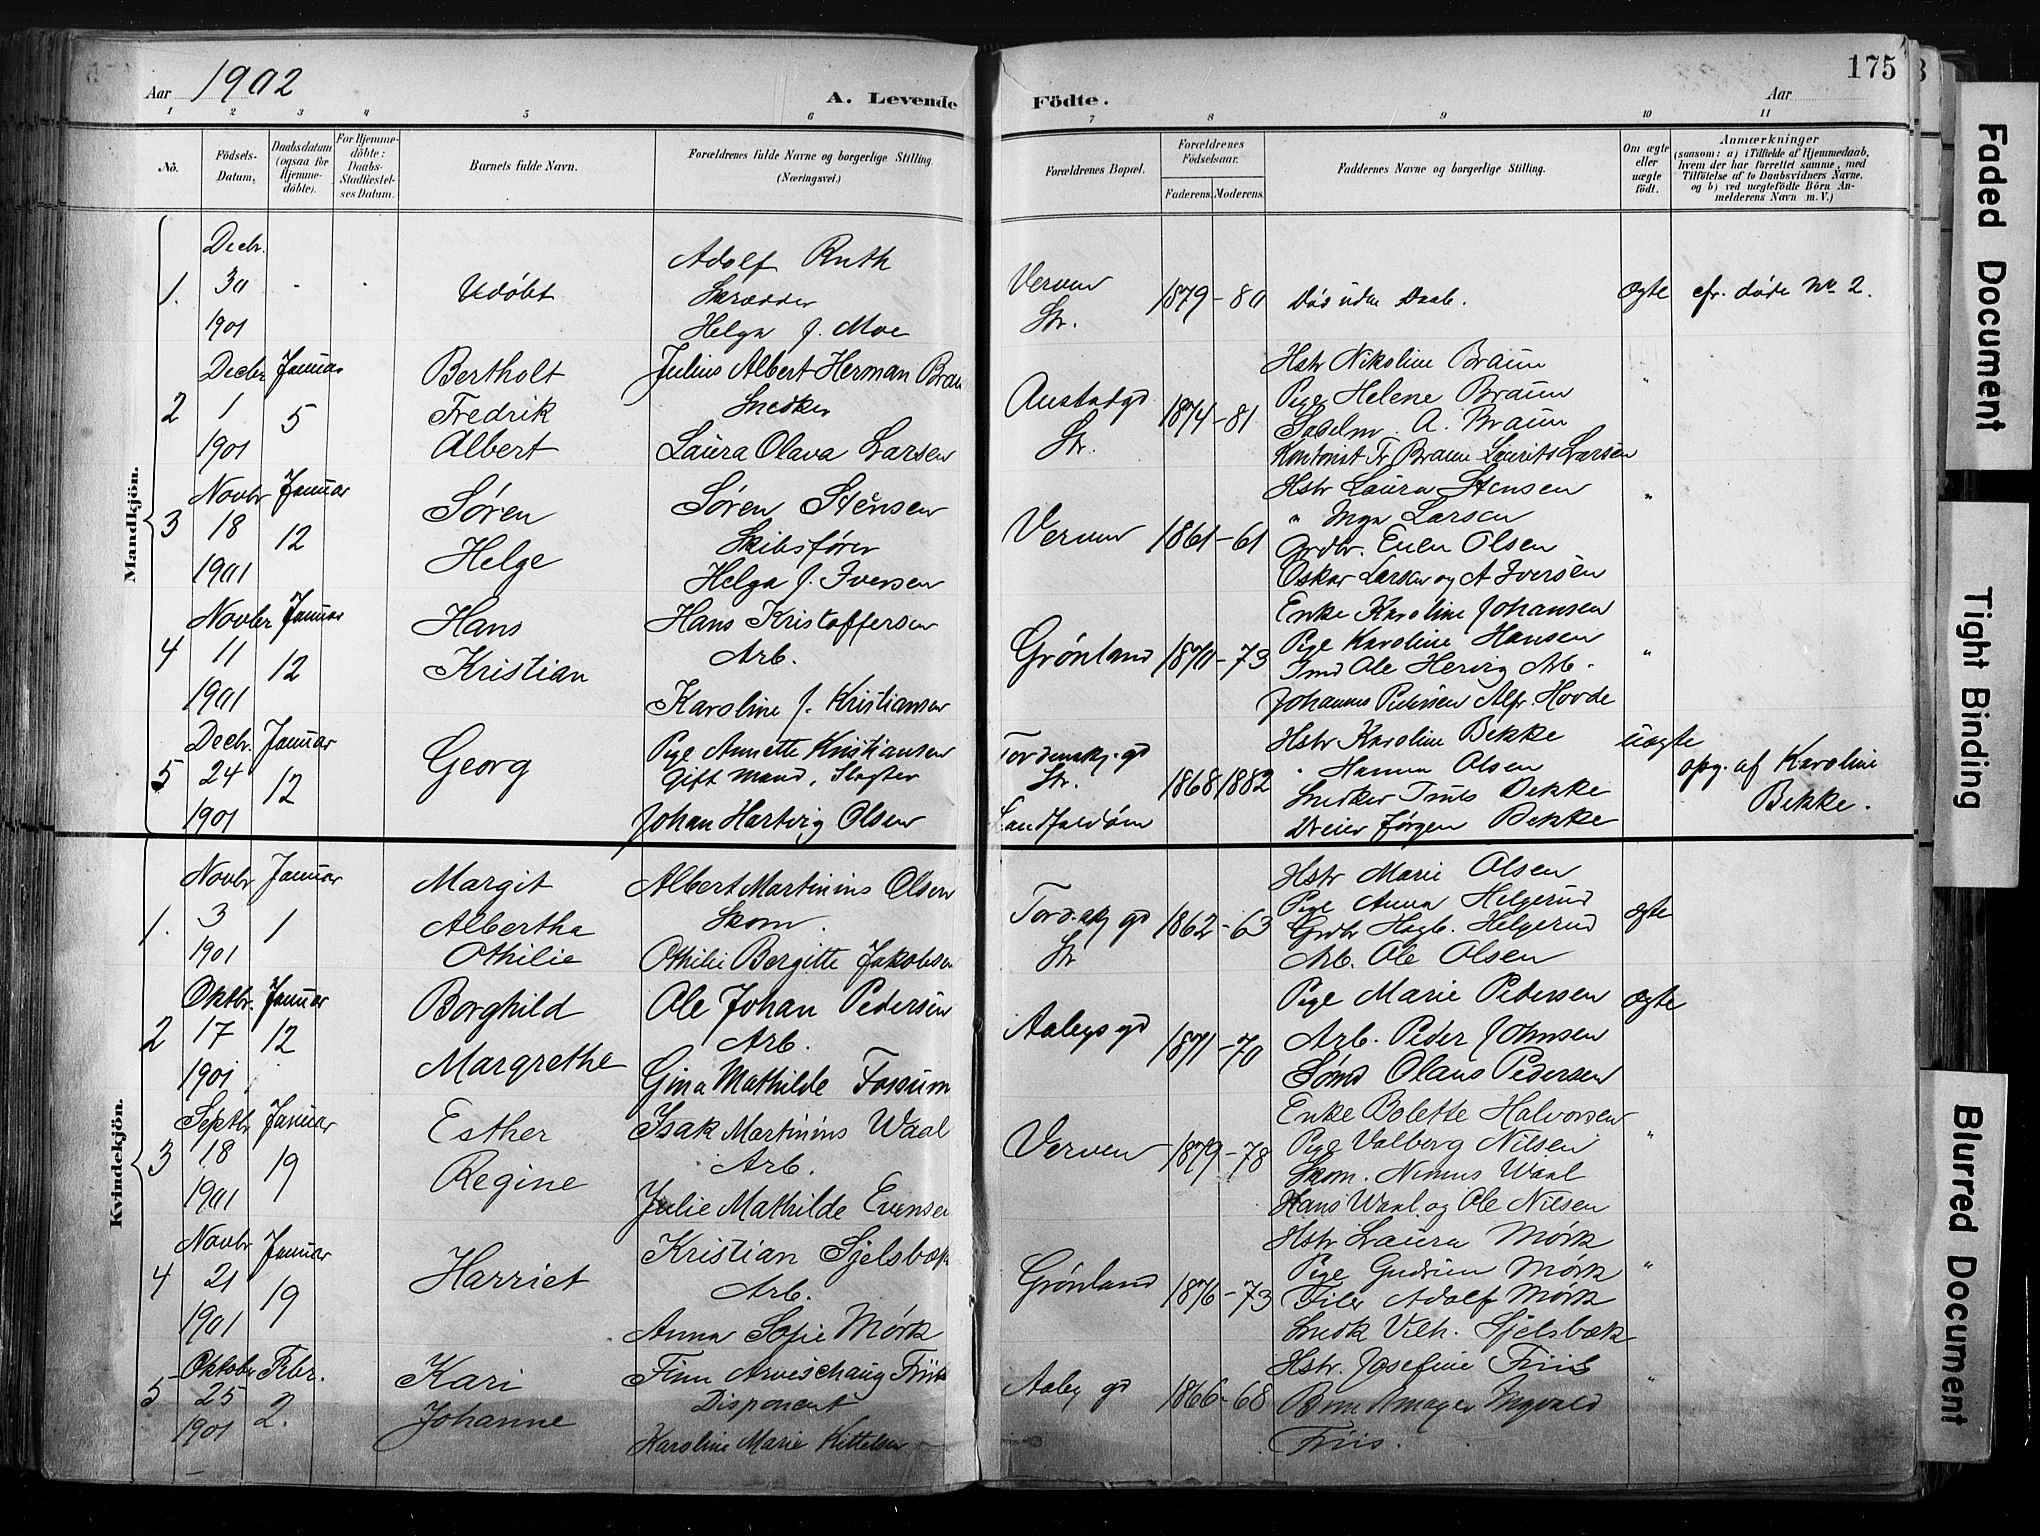 175
Aar 1902
A. Levende Födte.
Aar
1 2 3 4 5 6 7 8 9 10 11
No.
Födsels-Datum.
Daabsdatum (ogsaa for Hjemme-döbte).
For Hjemme-döbte: Daabs-Stadfæstelses Datum.
Barnets fulde Navn.
Forældrenes fulde Navne og borgerlige Stilling. (Næringsvei.)
Forældrenes Bopæl.
Forældrenes Födselsaar.
Faderens. Moderens.
Faddernes Navne og borgerlige Stilling.
Om ægte eller uægte födt.
Anmærkninger
(saasom: a) i Tilfælde af Hjemmedaab,
hvem der har forrettet samme, med
Tilföielse af to Daabsvidners Navne.
og b) ved uægtefödte Börn An-
melderens Navn m. V.)
Mandkjön.
1. Decbr. 30 1901
Udøbt
Adolf Ruth
Skrædder
Helga f. Moe
Verven
Str.
1879-80
Død uden Daab.
Ægte
cfr. døde No 2.
2 Decbr 1 1901
Januar 5
Bertholt
Fredrik
Albert
Julius Albert Herman Brau
Snedker
Laura Olava Larsen
Austadgd
Str.
1874-81
Hstr Nikoline Braun
Pige Helene Braun
Sadelm. A. Braun
Kontorist Fr Braun Laurits Larsen
"
3 Novbr 18 1901
Januar 12
Søren
Helge
Søren Stensen
Skibsfører
Helga f. Iversen
Verven
1861-61
Hstr Laura Stensen
" Inga Larsen
Grdbr. Even Olsen
Oskar Larsen og A Iversen
"
4 Novbr 11 1901
Januar 12
Hans
Kristian
Hans Kristoffersen
Arb.
Karoline f. Kristiansen
Grønland
1870-73
Enke Karoline Johansen
Pige Karoline Hansen
Ole Hervig Arb.
Johannes Pedersen Alfr. Hovde
"
5 Decbr. 24 1901
Januar 12
Georg
Pige Annette Kristiansen
Gift mand, Slagter
Johan Hartvig Olsen
Tordenskj. gd
Str.
1868 1882
Hstr Karoline Bekke
" Hanna Olsen
Snedker Truls Bekke
Dreier Jørgen Bekke
uægte
opg. af Karoline
Bekke.
Kvindekjön.
1. Novbr 3 1901
Januar 1
Margit
Albertha
Othilie
Albert Martinius Olsen
Skom.
Othilie Bergitte Jakobsen
Tord.skj gd
Str
1862-63
Hstr Marie Olsen
Pige Anna Helgerud
Grdbr Hagb. Helgerud
Arb. Ole Olsen
ægte
2 Oktbr. 17 1901
Januar 12
Borghild
Margrethe
Ole Johan Pedersen
Arb.
Gina Mathilde Fossum
Aabygs gd
1871-70
Pige Marie Pedersen
Arb. Peder Johnsen
Sømd Olaus Pedersen
Ægte
3 Septbr 18 1901
Januar 19
Esther
Regine
Isak Martinius Waal
Arb.
Julie Mathilde Evensen
Verven
1879-78
Enke Bolette Halvorsen
Pige Valborg Nilsen
Skom. Nimus Waal
Hans Waal og Ole Nilsen
"
4 Novbr 21 1901
Januar 19
Harriet
Kristian Sjelsbæk
Arb.
Anna Sofie Mørk
Grønland
1876-73
Hstr Laura Mørk
Pige Gudrun Mørk
Filer Adolf Mørk
Snedk Vilh. Sjelsbæk
"
5 Oktober 25 1901
Febr. 2.
Kari
Johanne
Finn Arveschaug Friis
Disponent
Karoline Marie Kittelsen
Aaby gd
1866-68
Hstr. Josefine Friis
Ingvald
Friis.
"
Faded Document
Tight Binding
Blurred Document